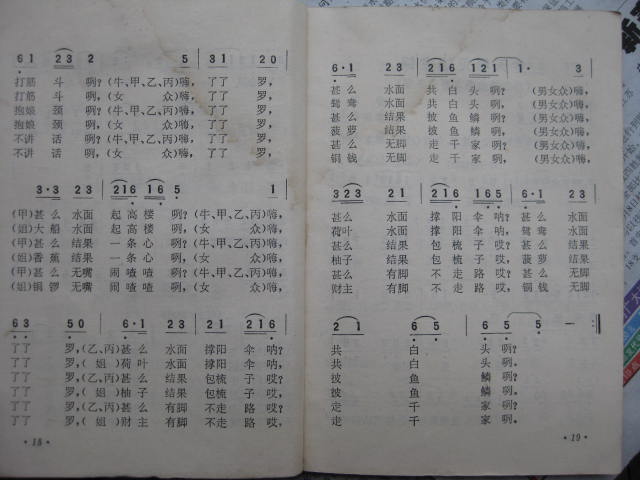 6 1 2 3 2 5 3 1 2 0
打筋 斗 咧?(牛、甲、乙、丙)嗨, 了了 罗,
打筋 斗 咧,(女 众)嗨, 了了 罗,
抱娘 颈 咧?(牛、甲、乙、丙)嗨, 了了 罗,
抱娘 颈 咧,(女 众)嗨, 了了 罗,
不讲 话 咧?(牛、甲、乙、丙)嗨, 了了 罗,
不讲 话 咧,(女 众)嗨, 了了 罗,
3·3 2 3 2 1 6 1 6 5 1
(甲)甚 么 水面 起高楼 咧?(牛、甲、乙、丙)嗨,
(姐)大 船 水面 起高楼 咧,(女 众)嗨,
(甲)甚 么 结果 一条心 咧?(牛、甲、乙、丙)嗨,
(姐)香 蕉 结果 一条心 咧,(女 众)嗨,
(甲)甚 么 无嘴 闹喳喳 咧?(牛、甲、乙、丙)嗨,
(姐)铜 锣 无嘴 闹喳喳 咧,(女 众)嗨,
6 3 5 0 6·1 2 3 2 1 2 1 6
了了 罗,(乙、丙)甚 么 水面 撑阳 伞 呐?
了了 罗,(姐)荷 叶 水面 撑阳 伞 呐,
了了 罗,(乙、丙)甚 么 结果 包梳 子 哎?
了了 罗,(姐)柚 子 结果 包梳 子 哎,
了了 罗,(乙、丙)甚 么 有脚 不走 路 哎?
了了 罗,(姐)财 主 有脚 不走 路 哎,
·18·
6·1 2 3 2 1 6 1 2 1 1· 3
甚 么 水面 共白 头 咧? (男女众)嗨,
鸳 鸯 水面 共白 头 咧, (男女众)嗨,
甚 么 结果 披鱼 鳞 咧? (男女众)嗨,
菠 萝 结果 披鱼 鳞 咧, (男女众)嗨,
甚 么 无脚 走千 家 咧? (男女众)嗨,
铜 钱 无脚 走千 家 咧, (男女众)嗨,
3 2 3 2 1 2 1 6 1 6 5 6·1 2 3
甚 么 水面 撑阳 伞 呐? 甚 么 水面
荷 叶 水面 撑阳 伞 呐, 鸳 鸯 水面
甚 么 结果 包梳 子 哎? 甚 么 结果
柚 子 结果 包梳 子 哎, 菠 萝 结果
甚 么 有脚 不走 路 哎? 甚 么 无脚
财 主 有脚 不走 路 哎, 铜 钱 无脚
2 1 6 5 6 5 5 —
共 白 头 咧?
共 白 头 咧。
披 鱼 鳞 咧?
披 鱼 鳞 咧。
走 千 家 咧?
走 千 家 咧。
·19·